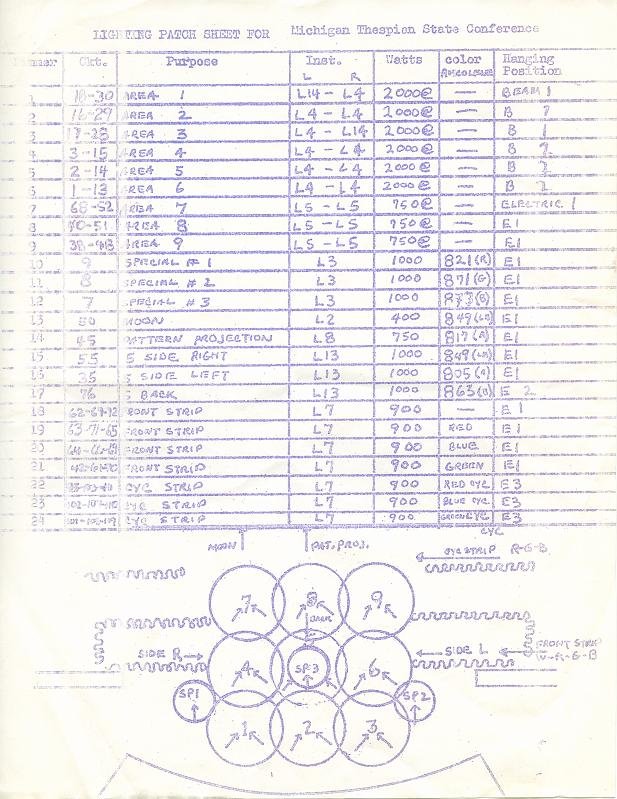 LIGHTING PATCH SHEET FOR Michigan Thespian State Conference
Ckt. Purpose Inst. Watts color Hanging
L R Position
1 18-30 AREA 1 L14-L4 2000@ — BEAM 1
2 16-29 AREA 2 L4-L4 2000@ — B
3 17-28 AREA 3 L4-L14 2000@ — B 1
4 3-15 AREA 4 L4-L4 2000@ — B
5 2-14 AREA 5 L4-L4 2000@ — B
6 1-13 AREA 6 L4-L4 2000@ — B
7 AREA 7 L5-L5 750@ — ELECTRIC 1
8 AREA 8 L5-L5 750@ — E1
9 AREA 9 L5-L5 750@ — E1
10 9 SPECIAL # 1 L3 1000 821(R) E1
11 8 SPECIAL # 2 L3 1000 871(G) E1
12 7 SPECIAL # 3 L3 1000 E1
13 50 MOON L2 400 E1
14 45 PATTERN PROJECTION L8 750 E1
15 55 S SIDE RIGHT L13 1000 E1
16 35 S SIDE LEFT L13 1000 E1
17 76 S BACK L13 1000 E 2
18 FRONT STRIP L7 900 — E1
19 FRONT STRIP L7 900 RED E1
20 FRONT STRIP L7 900 BLUE E1
21 FRONT STRIP L7 900 GREEN E1
22 CYC STRIP L7 900 RED CYC E3
23 CYC STRIP L7 900 BLUE CYC E3
24 CYC STRIP L7 900 GREEN CYC E3
CYC
MOON PAT. PROJ. CYC STRIP R-G-B
7 8 9
BACK
SIDE R 4 SP3 6 SIDE L FRONT STRIP
W-R-G-B
SP1 SP2
1 2 3